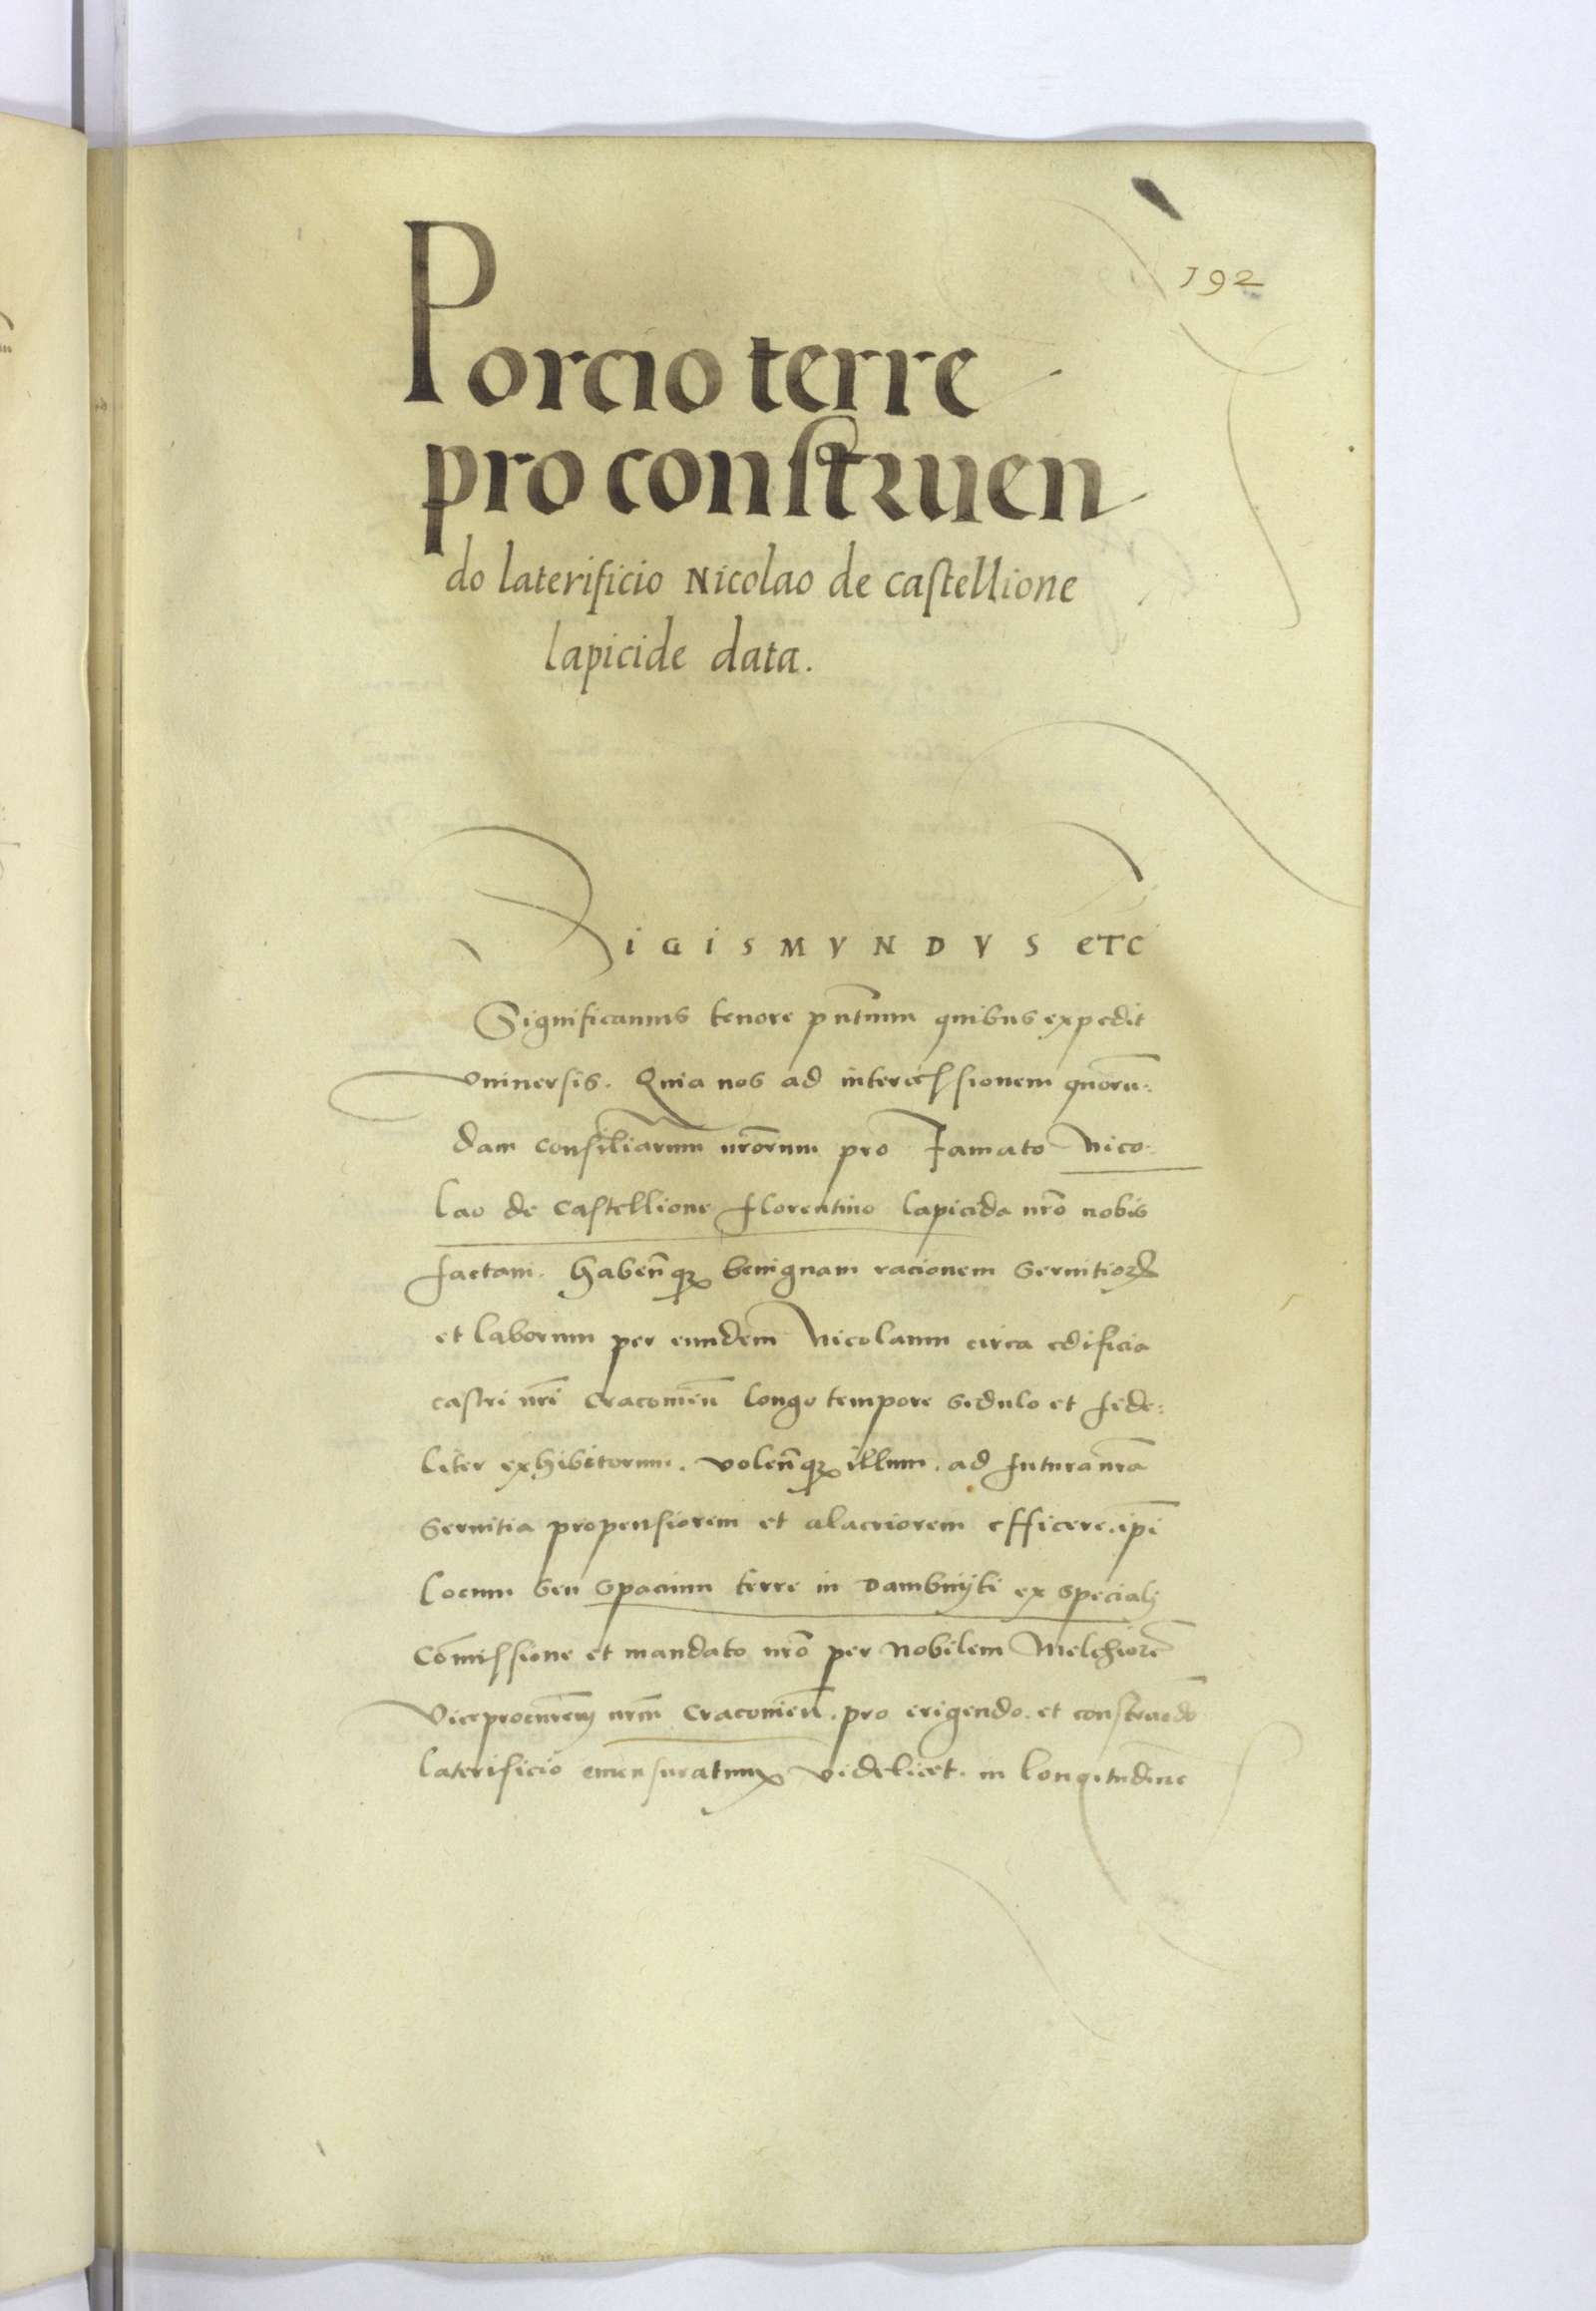 192
Porcio terre
pro construen
do laterificio Nicolao de castellione
lapicide data.
SIGISMVNDVS ETC
Significamus tenore pñtium quibus expedit
vniuersis. Quia nos ad intercessionem quorũ:
dam consiliariũm nr̃orum pro Famato Nico:
lao de castellione florentino lapicida nr̃o nobis
factam. habeñ qꝫ benignam racionem seruitioꝝ
et laborum per eundem Nicolaum circa edificia
castri nr̃i Cracouieñ longo tempore sedulo et fide:
liter exhibitorum. voleñ qꝫ illum. ad futura nr̃a
seruitia propensiorem et alacriorem efficere. ip̃i
locum seu spacium terre in Dambnijki ex speciali
Com̃issione et mandato nr̃o per Nobilem Melchiorẽ
Viceprocur̃em nr̃m Cracouieñ. pro erigendo. et construẽdo
laterificio emensuratum videlicet. in longitudine